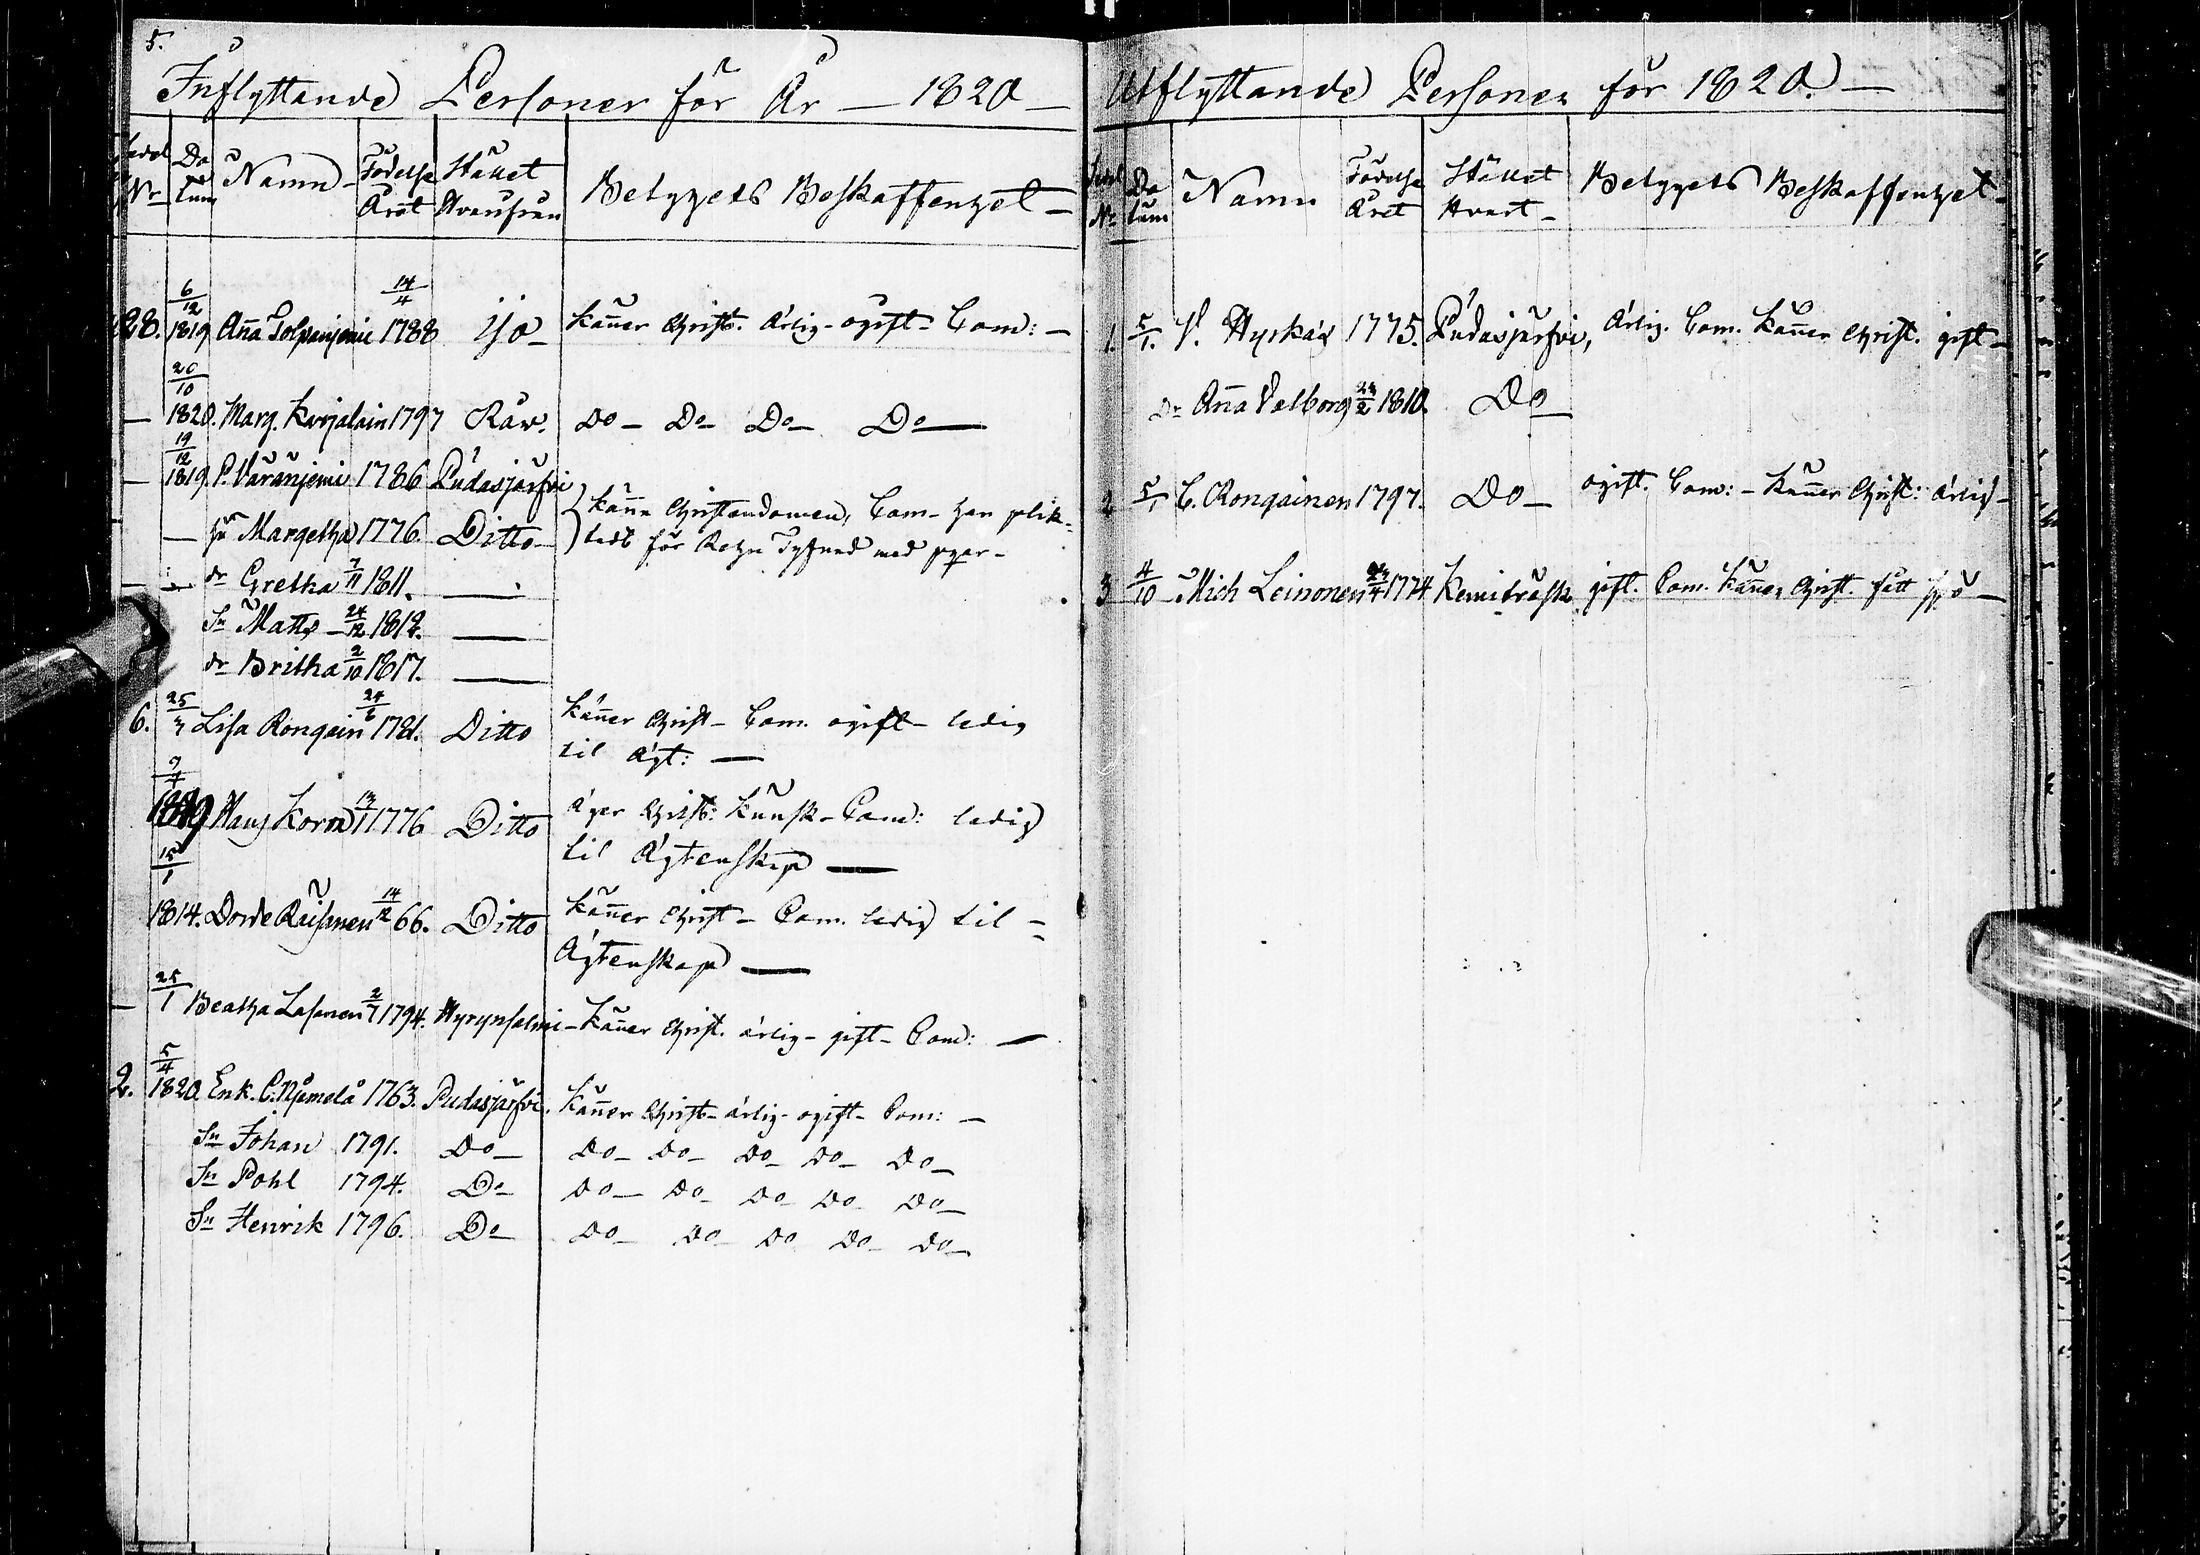 5.
Inflyttande Personer för År — 1820 —
Sedel Nr Datum Namn Födelse Året Stället Hvarifrån Betygets Beskaffenhet —
28. 6/12 1819 Aña Tolpanjemi 14/4 1788 Ijo — Käñer Christ. Ärlig - ogift - Com: —
— 20/10 1820. Marg. Karjalain 1797 Råw. Do — Do — Do — Do —
— 19/12 1819. P. Väränjemi 1786 Pudasjärfvi
— hu Margetha 1776. Ditto — Käña Christendomen, Com - han plik-
dr Gretha 7/11 1811. — tadt för
Sn Matts — 24/12 1812. —
dr Britha 2/10 1817. —
6. 25/3 Lisa Rongain 24/6 1781. Ditto Käñer Christ - Com. ogift - ledig
til Ägt: —
7/4 1819 Hans Korva 13/1 1776 Ditto Äger Christ: Kunsk - Com: ledig
til Ägtenskap —
15/1 1814. Dorde Räisänen 14/12 66. Ditto Käñer Christ - Com. ledig til -
Ägtenskap —
— 25/1 Beatha Lasanen 2/7 1794. Hyrynsalmi - Käñer Christ. ärlig - gift - Com: —
2. 5/4 1820 Enk. C. Njemelä 1763. Pudasjärfvi. Käñer Christ - ärlig - ogift - Com: —
Sn Johan 1791. Do — Do — Do — Do — Do — Do —
Sn Pohl 1794. Do — Do — Do — Do — Do — Do —
Sn Henrik 1796. Do — Do — Do — Do — Do — Do —
Utflyttande Personer för 1820. —
Sedel Nr Datum Namn Födelse Året Stället Hvart — Betygets Beskaffenhet —
1. 5/1. P. Hyrkäs 1775. Pudasjärfvi, Ärlig. Com. Käñer Christ. gift —
Dr Aña Valborg 24/2 1810. Do —
2 5/1 C. Rongainen 1797. Do — ogift. Com: — Käñer Christ: ärlig —
3 4/10 Mich Leinonen 1774 Kemiträsk gift. Com. Käñer Christ. fått